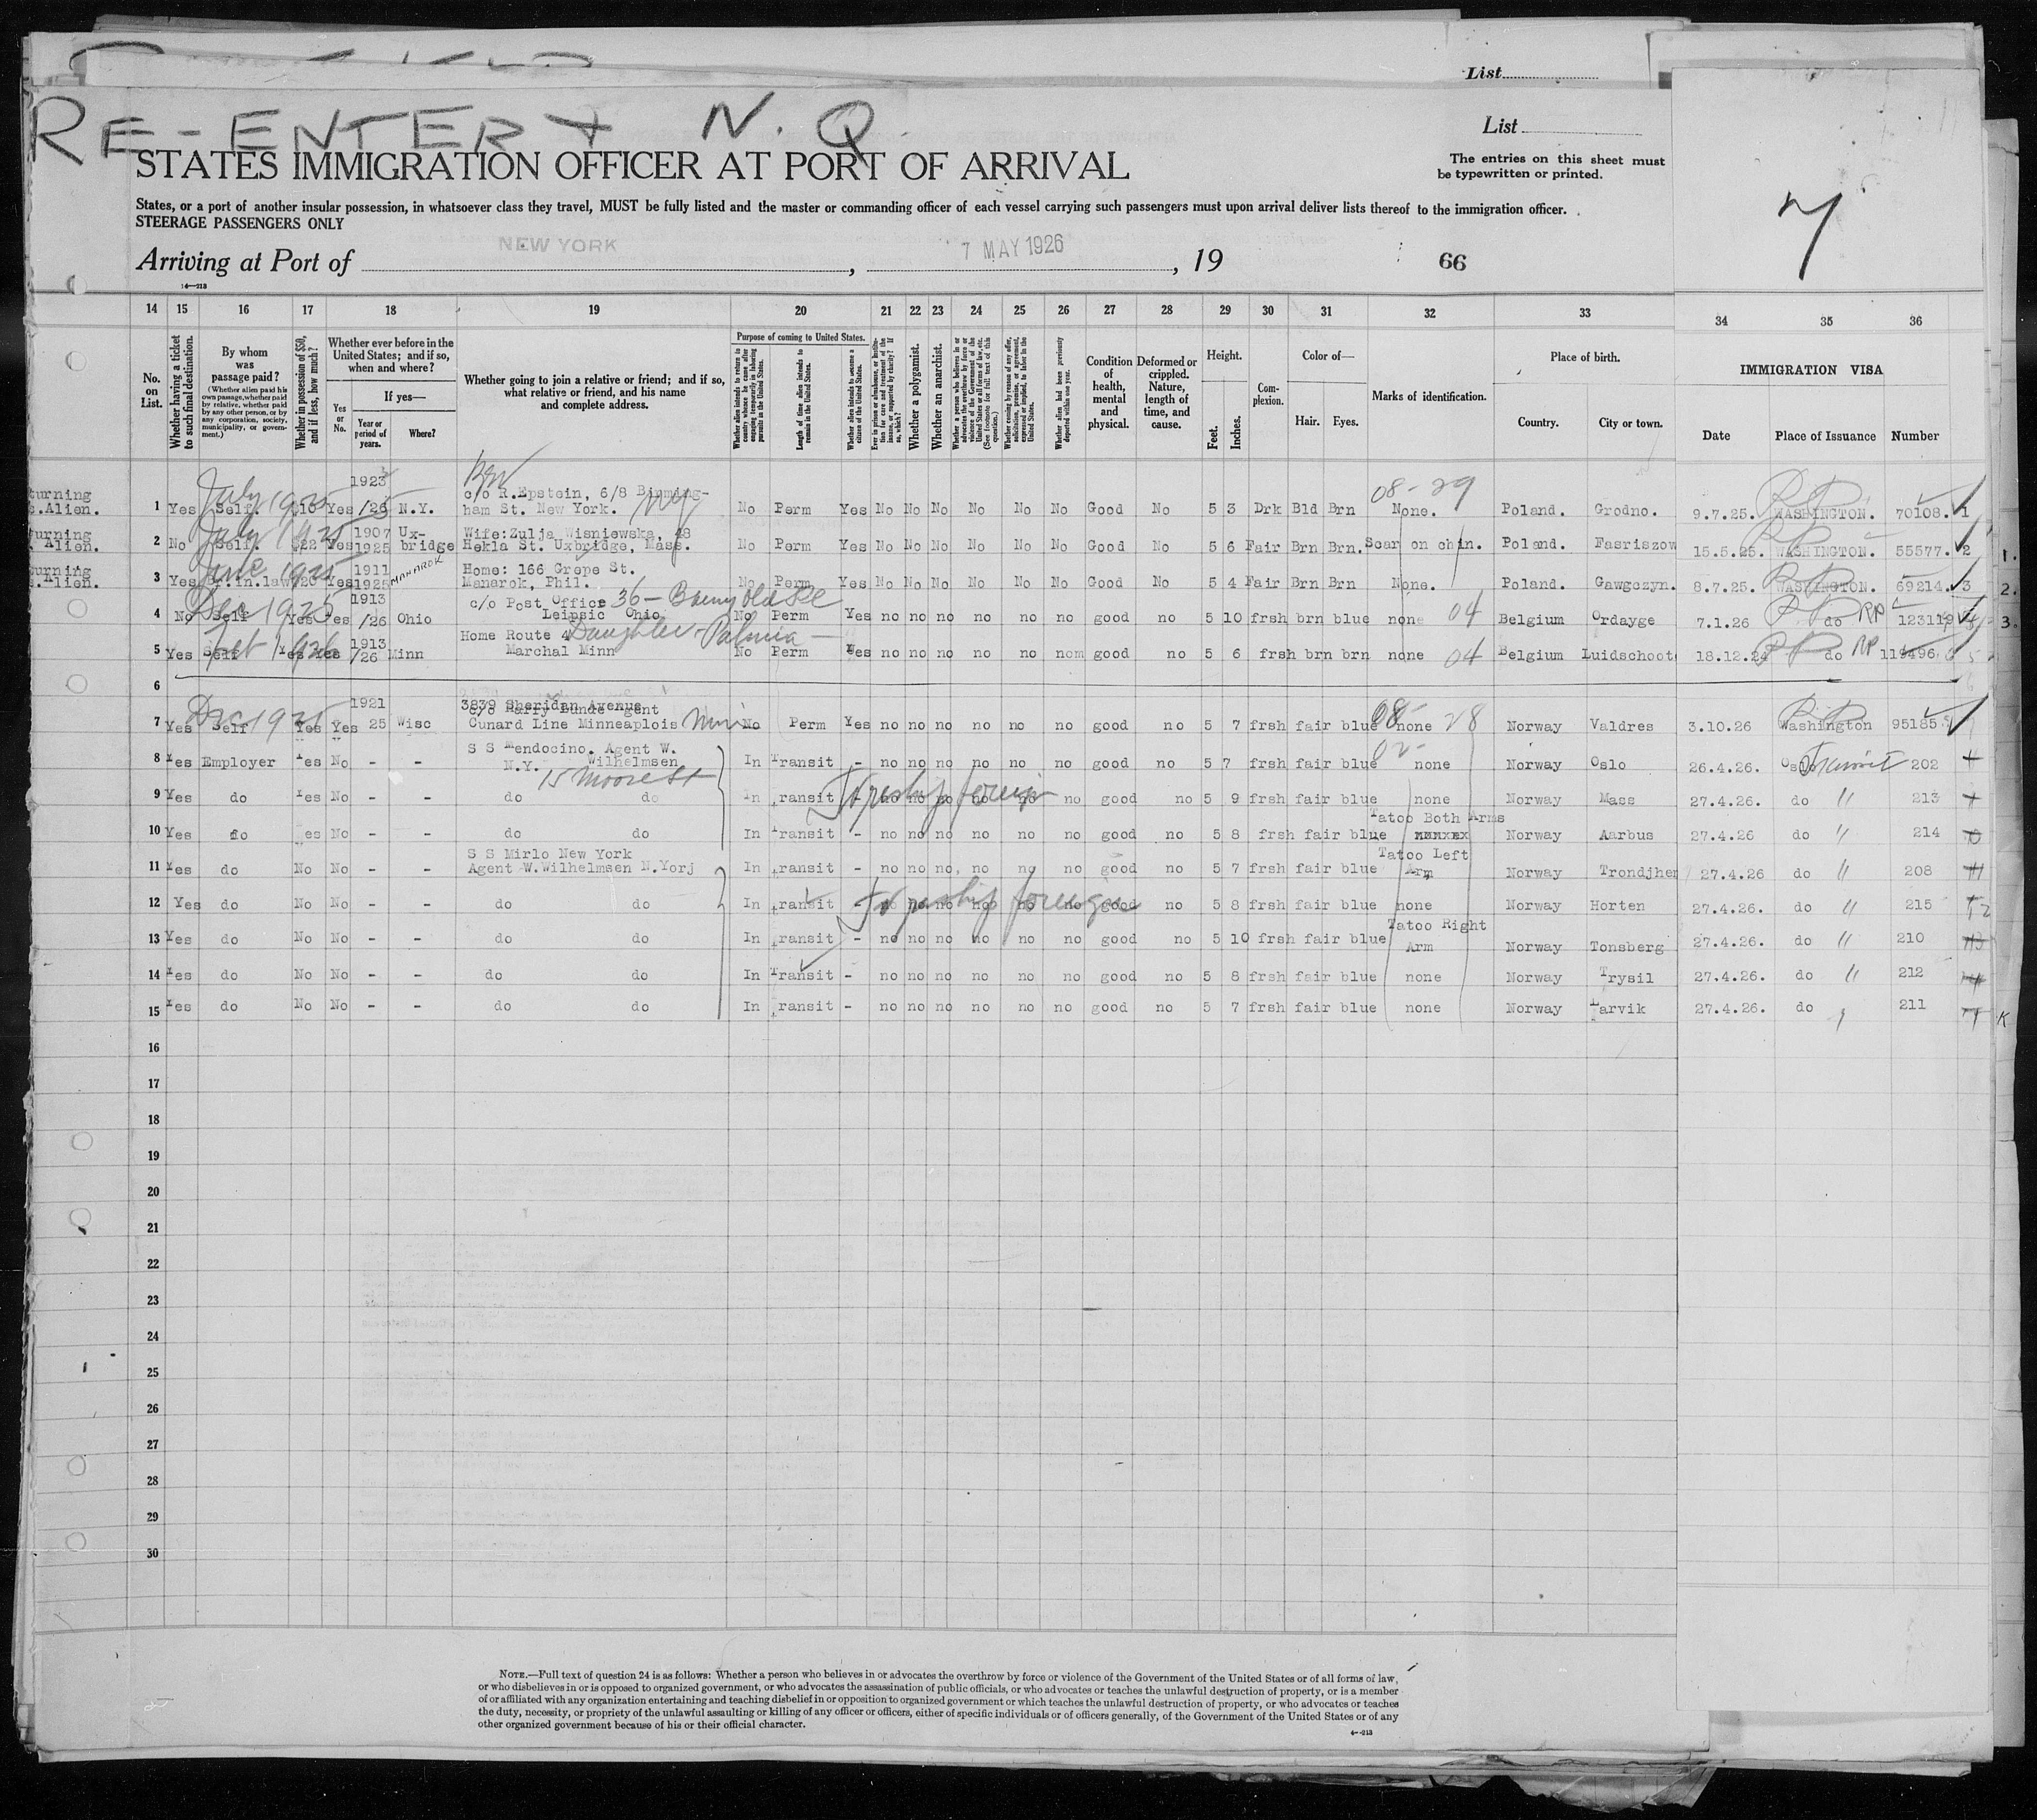 List
RE-ENTER + N.Q.
List
STATES IMMIGRATION OFFICER AT PORT OF ARRIVAL
The entries on this sheet must
be typewritten or printed.
States, or a port of another insular possession, in whatsoever class they travel, MUST be fully listed and the master or commanding officer of each vessel carrying such passengers must upon arrival deliver lists thereof to the immigration officer.
STEERAGE PASSENGERS ONLY
Arriving at Port of NEW YORK, 7 MAY 1926, 19 66
7
14—213
14 15 16 17 18 19 20 21 22 23 24 25 26 27 28 29 30 31 32 33 34 35 36
No. on List.
Whether having a ticket to such final destination.
By whom was passage paid?
(Whether alien paid his own passage, whether paid by relative, whether paid by any other person, or by any corporation, society, municipality, or government.)
Whether in possession of $50, and if less, how much?
Whether ever before in the United States; and if so, when and where?
Yes or No.
If yes—
Year or period of years.
Where?
Whether going to join a relative or friend; and if so, what relative or friend, and his name and complete address.
Purpose of coming to United States.
Whether alien intends to return to country whence he came after engaging temporarily in laboring pursuits in the United States.
Length of time alien intends to remain in the United States.
Whether alien intends to become a citizen of the United States.
Whether a polygamist.
Whether an anarchist.
Condition of health, mental and physical.
Deformed or crippled. Nature, length of time, and cause.
Height.
Feet. Inches.
Complexion.
Color of—
Hair. Eyes.
Marks of identification.
Place of birth.
Country. City or town.
IMMIGRATION VISA
Date Place of Issuance Number
July 1925 1923 08-29
turning c/o R.Epstein, 6/8 Birming-
.Alien. 1 Yes Self. Yes /26 N.Y. ham St. New York. NY No Perm Yes No No No No No No Good No 5 3 Drk Bld Brn None. Poland. Grodno. 9.7.25. WASHINGTON. 70108. 1
July 1925
turning 1907 Ux- Wife:Zulja Wisniewska, 48
Alien. 2 No Self. $22 Yes 1925 bridge Hekla St. Uxbridge, Mass. No Perm Yes No No No No No No Good No 5 6 Fair Brn Brn. Scar on chin. Poland. Fasriszow 15.5.25. WASHINGTON. 55577. 2
June 1925
turning 1911 MANAROK Home: 166 Grape St.
.Alien. 3 Yes .in.law Yes 1925 Manarok, Phil. No Perm Yes No No No No No No Good No 5 4 Fair Brn Brn None. Poland. Gawgczyn. 8.7.25. WASHINGTON. 69214. 3
Dec 1925 1913 c/o Post Office 36-
4 No Self Yes Yes /26 Ohio Leipsic Ohio No Perm Yes no no no no no no good no 5 10 frsh brn blue none 04 Belgium Ordayge 7.1.26 do RP 123119
1913 Home Route 4 Daughter-Palmia-
5 Yes Self Yes Yes /26 Minn Marchal Minn No Perm Yes no no no no no nom good no 5 6 frsh brn brn none 04 Belgium Luidschoot 18.12.24 do RP 119496
6
Dec 1925 1921 3839 Sheridan Avenue
c/o Harry Lunde Agent
7 Yes Self Yes Yes 25 Wisc Cunard Line Minneaplois Minn No Perm Yes no no no no no no good no 5 7 frsh fair blue 08- none 28 Norway Valdres 3.10.26 Washington 95185
S S Mendocino. Agent W.
8 Yes Employer Yes No - - N.Y. Wilhelmsen In Transit - no no no no no no good no 5 7 frsh fair blue none Norway Oslo 26.4.26. Oslo Transit 202
15 Moore St
9 Yes do Yes No - - do do In ransit - no no no no no no good no 5 9 frsh fair blue none Norway Mass 27.4.26. do " 213
To reship foreign
Tatoo Both Arms
10 Yes do es No - - do do In ransit - no no no no no no good no 5 8 frsh fair blue Norway Aarbus 27.4.26 do " 214
S S Mirlo New York Tatoo Left
11 Yes do No No - - Agent W.Wilhelmsen N.Yorj In ransit - no no no no no no good no 5 7 frsh fair blue Arm Norway Trondjhem 27.4.26 do " 208
12 Yes do No No - - do do In ransit no no no no no no good no 5 8 frsh fair blue none Norway Horten 27.4.26. do " 215
To reship foreign
Tatoo Right
13 Yes do No No - - do do In ransit - no no no no no no good no 5 10 frsh fair blue Arm Norway Tonsberg 27.4.26. do " 210
14 Yes do No No - - do do In Transit - no no no no no no good no 5 8 frsh fair blue none Norway Trysil 27.4.26. do " 212
15 Yes do No No - - do do In ransit - no no no no no no good no 5 7 frsh fair blue none Norway Larvik 27.4.26. do 211
16
17
18
19
20
21
22
23
24
25
26
27
28
29
30
NOTE.—Full text of question 24 is as follows: Whether a person who believes in or advocates the overthrow by force or violence of the Government of the United States or of all forms of law,
or who disbelieves in or is opposed to organized government, or who advocates the assassination of public officials, or who advocates or teaches the unlawful destruction of property, or is a member
of or affiliated with any organization entertaining and teaching disbelief in or opposition to organized government or which teaches the unlawful destruction of property, or who advocates or teaches
the duty, necessity, or propriety of the unlawful assaulting or killing of any officer or officers, either of specific individuals or of officers generally, of the Government of the United States or of any
other organized government because of his or their official character.
4—213